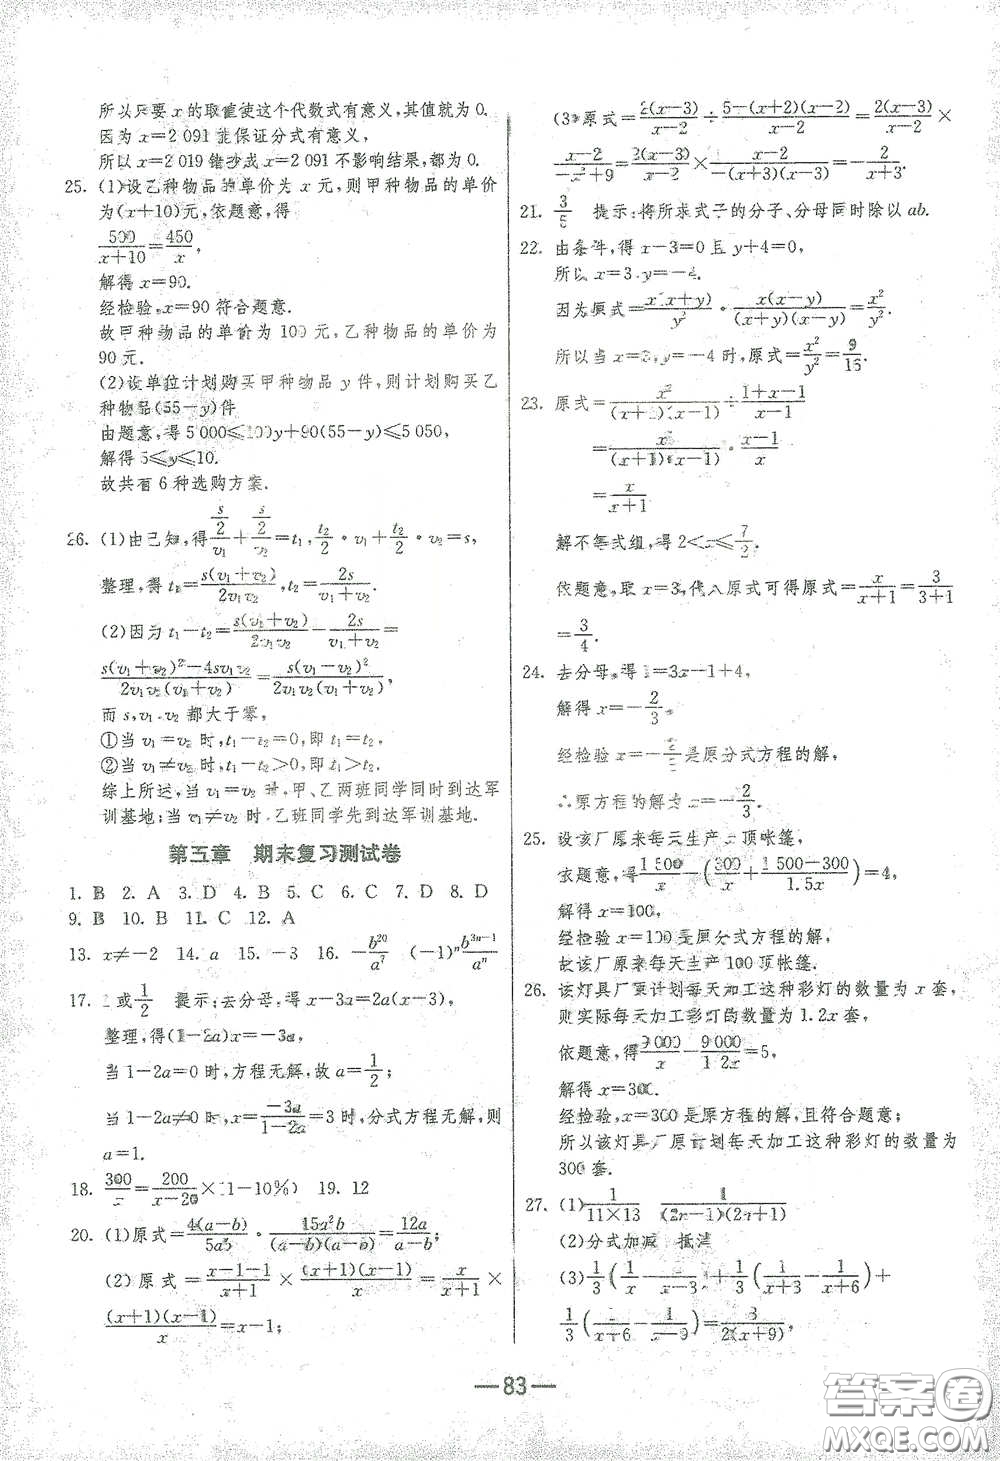 所以只要 x 的取值使这个代数式有意义,其值就为 0.
因为 x=2 091 能保证分式有意义,
所以 x=2 019 错抄成 x=2 091 不影响结果,都为 0.
25. (1)设乙种物品的单价为 x 元,则甲种物品的单价
为(x+10)元,依题意,得
500/(x+10)=450/x,
解得 x=90.
经检验,x=90 符合题意.
故甲种物品的单价为 100 元,乙种物品的单价为
90 元.
(2)设单位计划购买甲种物品 y 件,则计划购买乙
种物品(55-y)件
由题意,得 5 000≤100y+90(55-y)≤5 050,
解得 5≤y≤10.
故共有 6 种选购方案.
26. (1)由已知,得 (s/2)/v₁+(s/2)/v₂=t₁, t₂/2·v₁+t₂/2·v₂=s,
整理,得 t₁=s(v₁+v₂)/2v₁v₂, t₂=2s/(v₁+v₂).
(2)因为 t₁-t₂=s(v₁+v₂)/2v₁v₂-2s/(v₁+v₂)=
[s(v₁+v₂)²-4sv₁v₂]/2v₁v₂(v₁+v₂)=s(v₁-v₂)²/2v₁v₂(v₁+v₂),
而 s,v₁,v₂ 都大于零,
①当 v₁=v₂ 时,t₁-t₂=0,即 t₁=t₂.
②当 v₁≠v₂ 时,t₁-t₂>0,即 t₁>t₂.
综上所述,当 v₁=v₂ 时,甲、乙两班同学同时到达军
训基地;当 v₁≠v₂ 时,乙班同学先到达军训基地.
第五章 期末复习测试卷
1. B 2. A 3. D 4. B 5. C 6. C 7. D 8. D
9. B 10. B 11. C 12. A
13. x≠-2 14. a 15. -3 16. -b²⁰/a⁷ (-1)ⁿb³ⁿ⁻¹/aⁿ
17. 1或1/2 提示:去分母,得 x-3a=2a(x-3),
整理,得(1-2a)x=-3a,
当 1-2a=0 时,方程无解,故 a=1/2;
当 1-2a≠0 时,x=-3a/(1-2a)=3 时,分式方程无解,则
a=1.
18. 300/x=200/(x-20)×(1-10%) 19. 12
20. (1)原式=4(a-b)/5ab·15a²b/(a+b)(a-b)=12a/(a-b);
(2)原式=(x-1-1)/(x+1)×(x+1)(x-1)/=x/(x+1)×
(x+1)(x-1)/x=x-1;
(3)原式=2(x-3)/(x-2)÷[5-(x+2)(x-2)]/(x-2)=2(x-3)/(x-2)×
(x-2)/(-x²+9)=2(x-3)/(x-2)×(x-2)/-(x+3)(x-3)=-2/(x+3).
21. 3/5 提示:将所求式子的分子、分母同时除以 ab.
22. 由条件,得 x-3=0 且 y+4=0,
所以 x=3,y=-4.
因为原式=x(x+y)/y²·x(x-y)/(x+y)(x-y)=x²/y².
所以当 x=3,y=-4 时,原式=x²/y²=9/16.
23. 原式=x²/(x+1)(x-1)÷(1+x-1)/(x-1)
=x²/(x+1)(x-1)·(x-1)/x
=x/(x+1)
解不等式组,得 2<x≤7/2.
依题意,取 x=3,代入原式可得原式=x/(x+1)=3/(3+1)
=3/4.
24. 去分母,得 1=3x-1+4,
解得 x=-2/3.
经检验 x=-2/3是原分式方程的解,
∴原方程的解为 x=-2/3.
25. 设该厂原来每天生产 x 顶帐篷,
依题意,得 1 500/x-(300/x+(1 500-300)/1.5x)=4,
解得 x=100,
经检验 x=100 是原分式方程的解,
故该厂原来每天生产 100 顶帐篷.
26. 该灯具厂原计划每天加工这种彩灯的数量为 x 套,
则实际每天加工彩灯的数量为 1.2x 套,
依题意,得9 000/x-9 000/1.2x=5,
解得 x=300.
经检验,x=300 是原方程的解,且符合题意;
所以该灯具厂原计划每天加工这种彩灯的数量为
300 套.
27. (1)1/(11×13) 1/(2n-1)(2n+1)
(2)分式加减 抵消
(3)1/3(1/x-1/(x+3))+1/3(1/(x+3)-1/(x+6))+
1/3(1/(x+6)-1/(x+9))=3/2(x+9),
— 83 —
答案圈
MXQE.COM